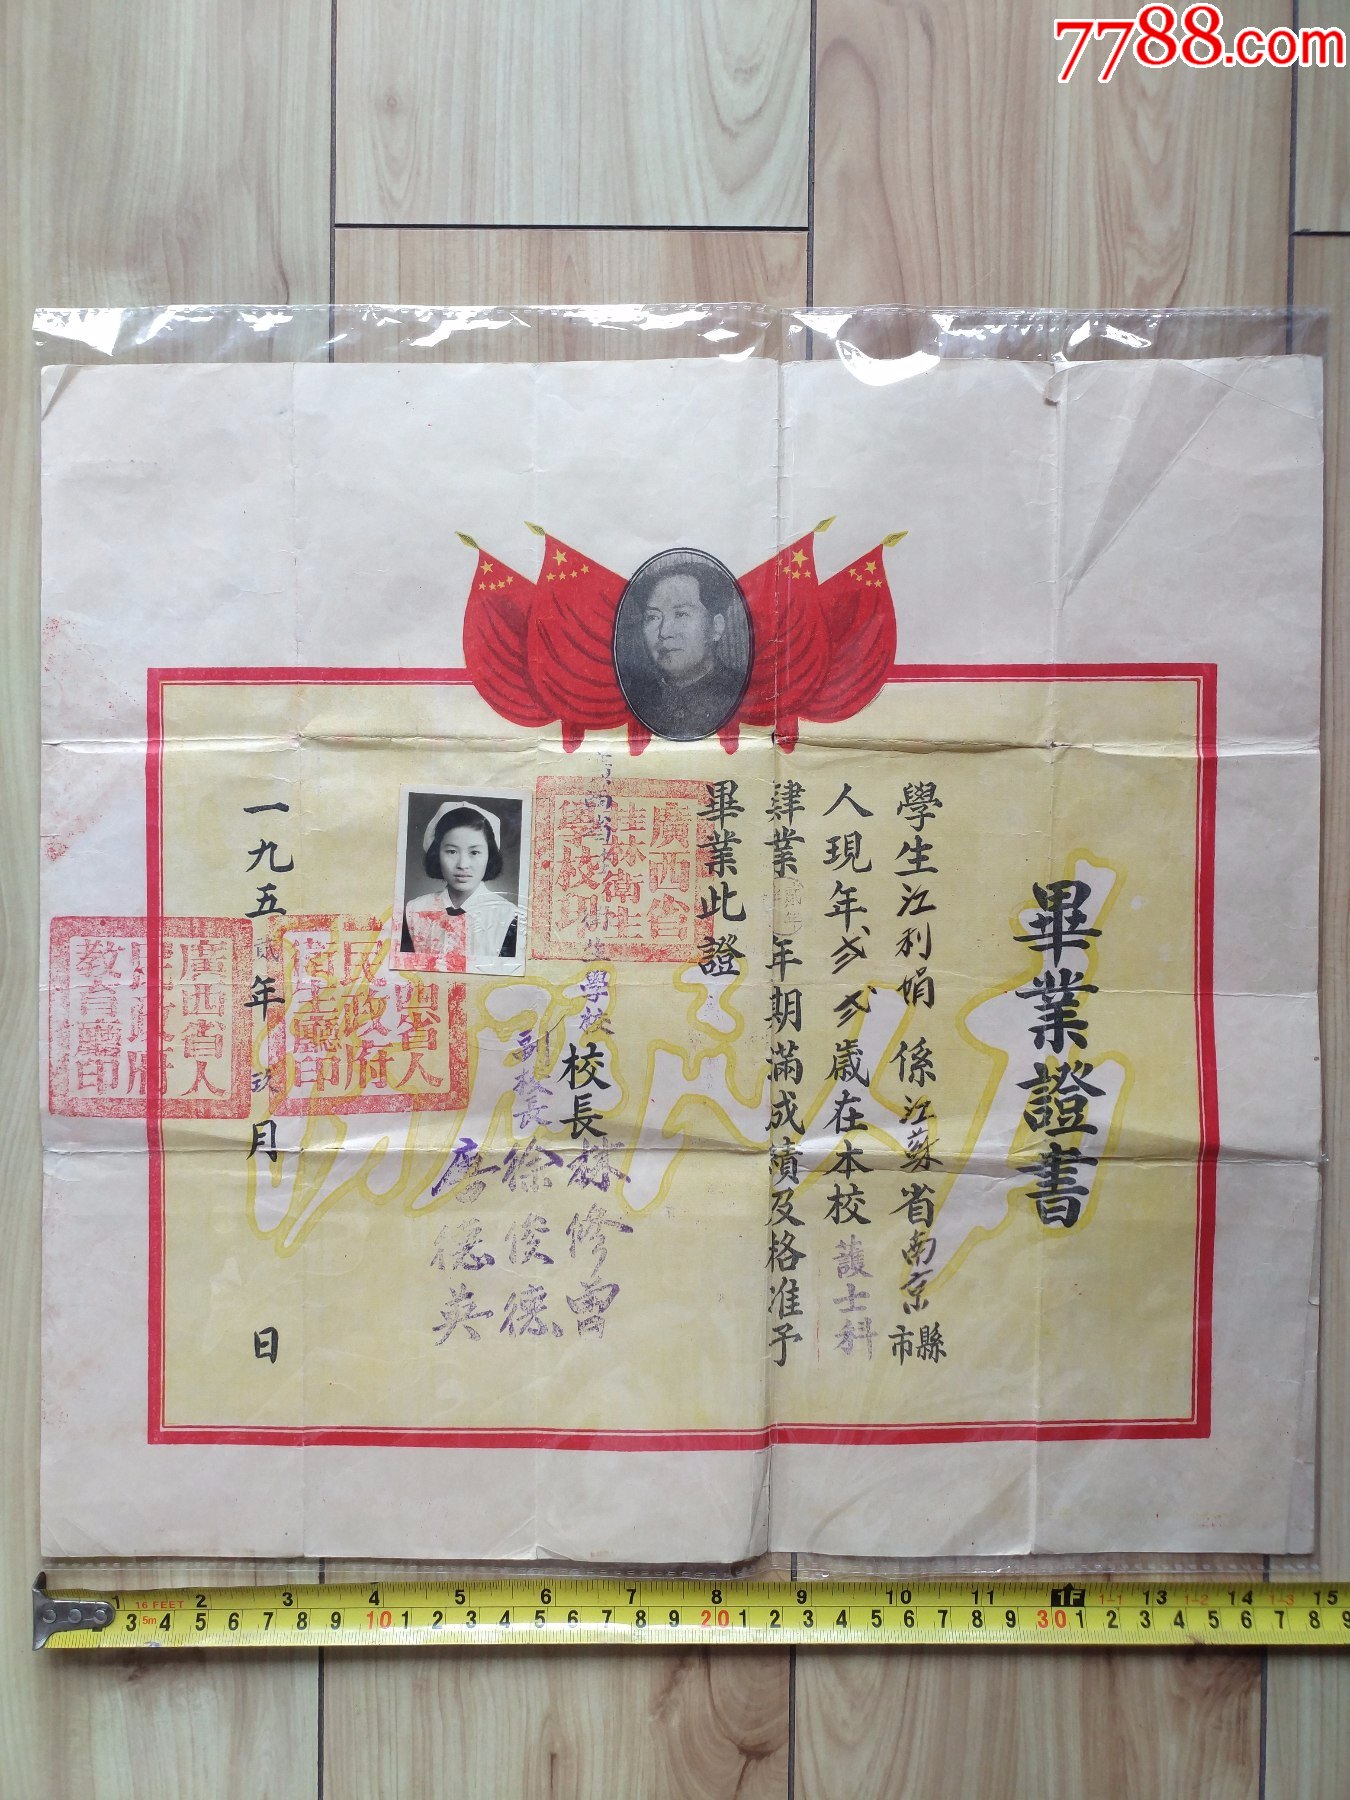 7788.com
畢業證書
學生江利娟 係江蘇省南京市縣
人現年弍弍歲在本校護士科
肄業貳年年期滿成績及格准予
畢業此證
廣西省桂林衛生學校印
生學校
校長林修曾
副校長徐俊德
唐德英
廣西省人民政府衛生廳印
廣西省人民政府教育廳印
一九五貳年玖月 日
為人民服務
16 FEET
5m
1 2 3 4 5 6 7 8 9 10 11 1F 1-1 13 1-2 14 1-3 15
3 4 5 6 7 8 9 10 1 2 3 4 5 6 7 8 9 20 1 2 3 4 5 6 7 8 9 30 1 2 3 4 5 6 7 8 9